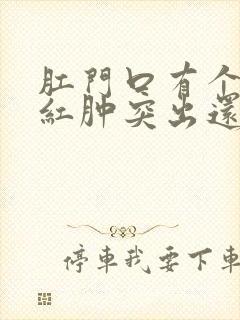 肛門口有个
紅肿突出還
停車我要下車